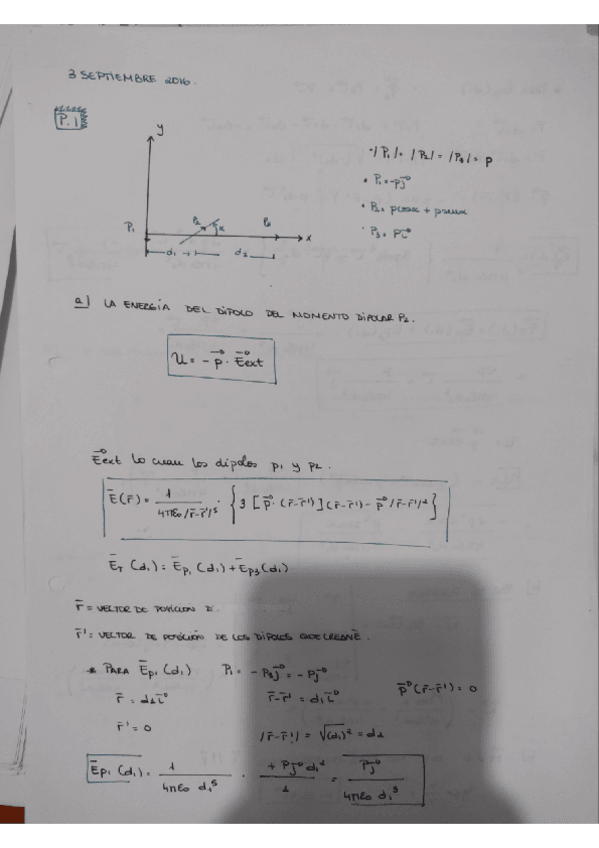 3 SEPTIEMBRE 2016.
P.1
y
• |P₁| = |P₂| = |P₃| = p
• P₁ = -pj⃗
• P₂ = pcosα + psenα
• P₃ = pi⃗
P₁ P₂ α P₃ x
d₁ d₂
a) LA ENERGÍA DEL DIPOLO DEL MOMENTO DIPOLAR P₂.
U = - p⃗ · E⃗ext
E⃗ext lo crean los dipolos p₁ y p₂.
E̅(r̅) = 1/(4πε₀|r̅-r̅'|⁵) · { 3 [p⃗ · (r̅-r̅')] (r̅-r̅') - p⃗ |r̅-r̅'|² }
E̅T (d₁) = E̅p₁ (d₁) + E̅p₃ (d₁)
r̅ = VECTOR DE POSICIÓN
r̅' = VECTOR DE POSICIÓN DE LOS DIPOLOS QUE CREAN E̅.
* PARA E̅p₁ (d₁) P₁ = - P₀j⃗ = - Pj⃗ p⃗(r̅-r̅') = 0
r̅ = d₁i⃗ r̅-r̅' = d₁i⃗
r̅' = 0 |r̅-r̅'| = √(d₁)² = d₁
E̅p₁ (d₁) = 1/(4πε₀ d₁⁵) · (+ Pj⃗ d₁²)/1 = Pj⃗/(4πε₀ d₁³)